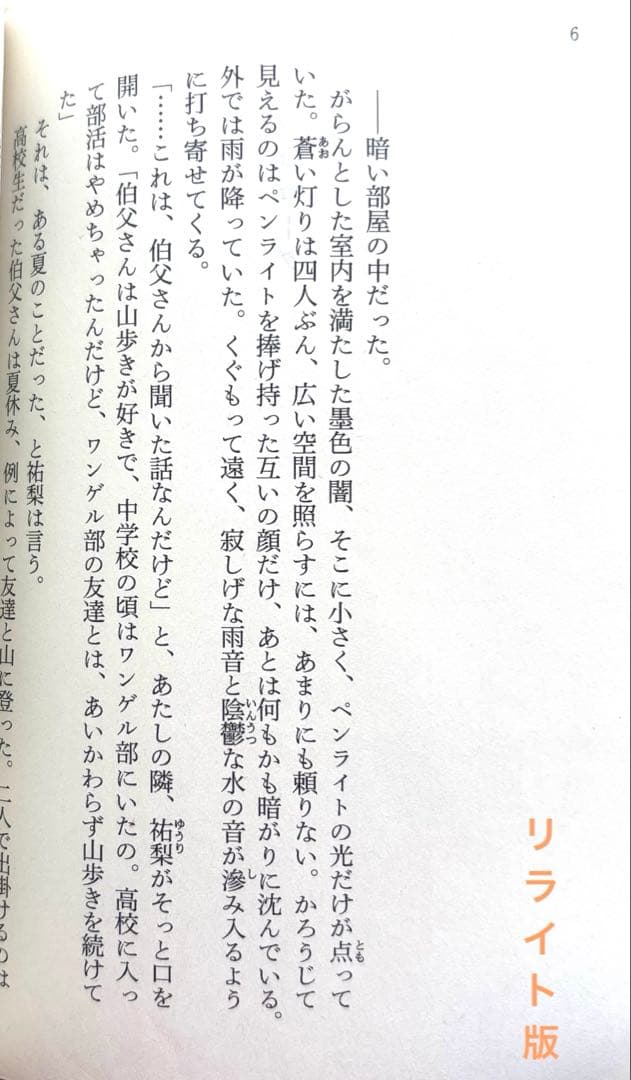 6
――暗い部屋の中だった。
がらんとした室内を満たした墨色の闇、そこに小さく、ペンライトの光だけが点って
いた。蒼い灯りは四人ぶん、広い空間を照らすには、あまりにも頼りない。かろうじて
見えるのはペンライトを捧げ持った互いの顔だけ、あとは何もかも暗がりに沈んでいる。
外では雨が降っていた。くぐもって遠く、寂しげな雨音と陰鬱な水の音が滲み入るよう
に打ち寄せてくる。
「……これは、伯父さんから聞いた話なんだけど」と、あたしの隣、祐梨がそっと口を
開いた。「伯父さんは山歩きが好きで、中学校の頃はワンゲル部にいたの。高校に入っ
て部活はやめちゃったんだけど、ワンゲル部の友達とは、あいかわらず山歩きを続けて
た」
それは、ある夏のことだった、と祐梨は言う。
高校生だった伯父さんは夏休み、例によって友達と山に登った。二人で出掛けるのは
リライト版